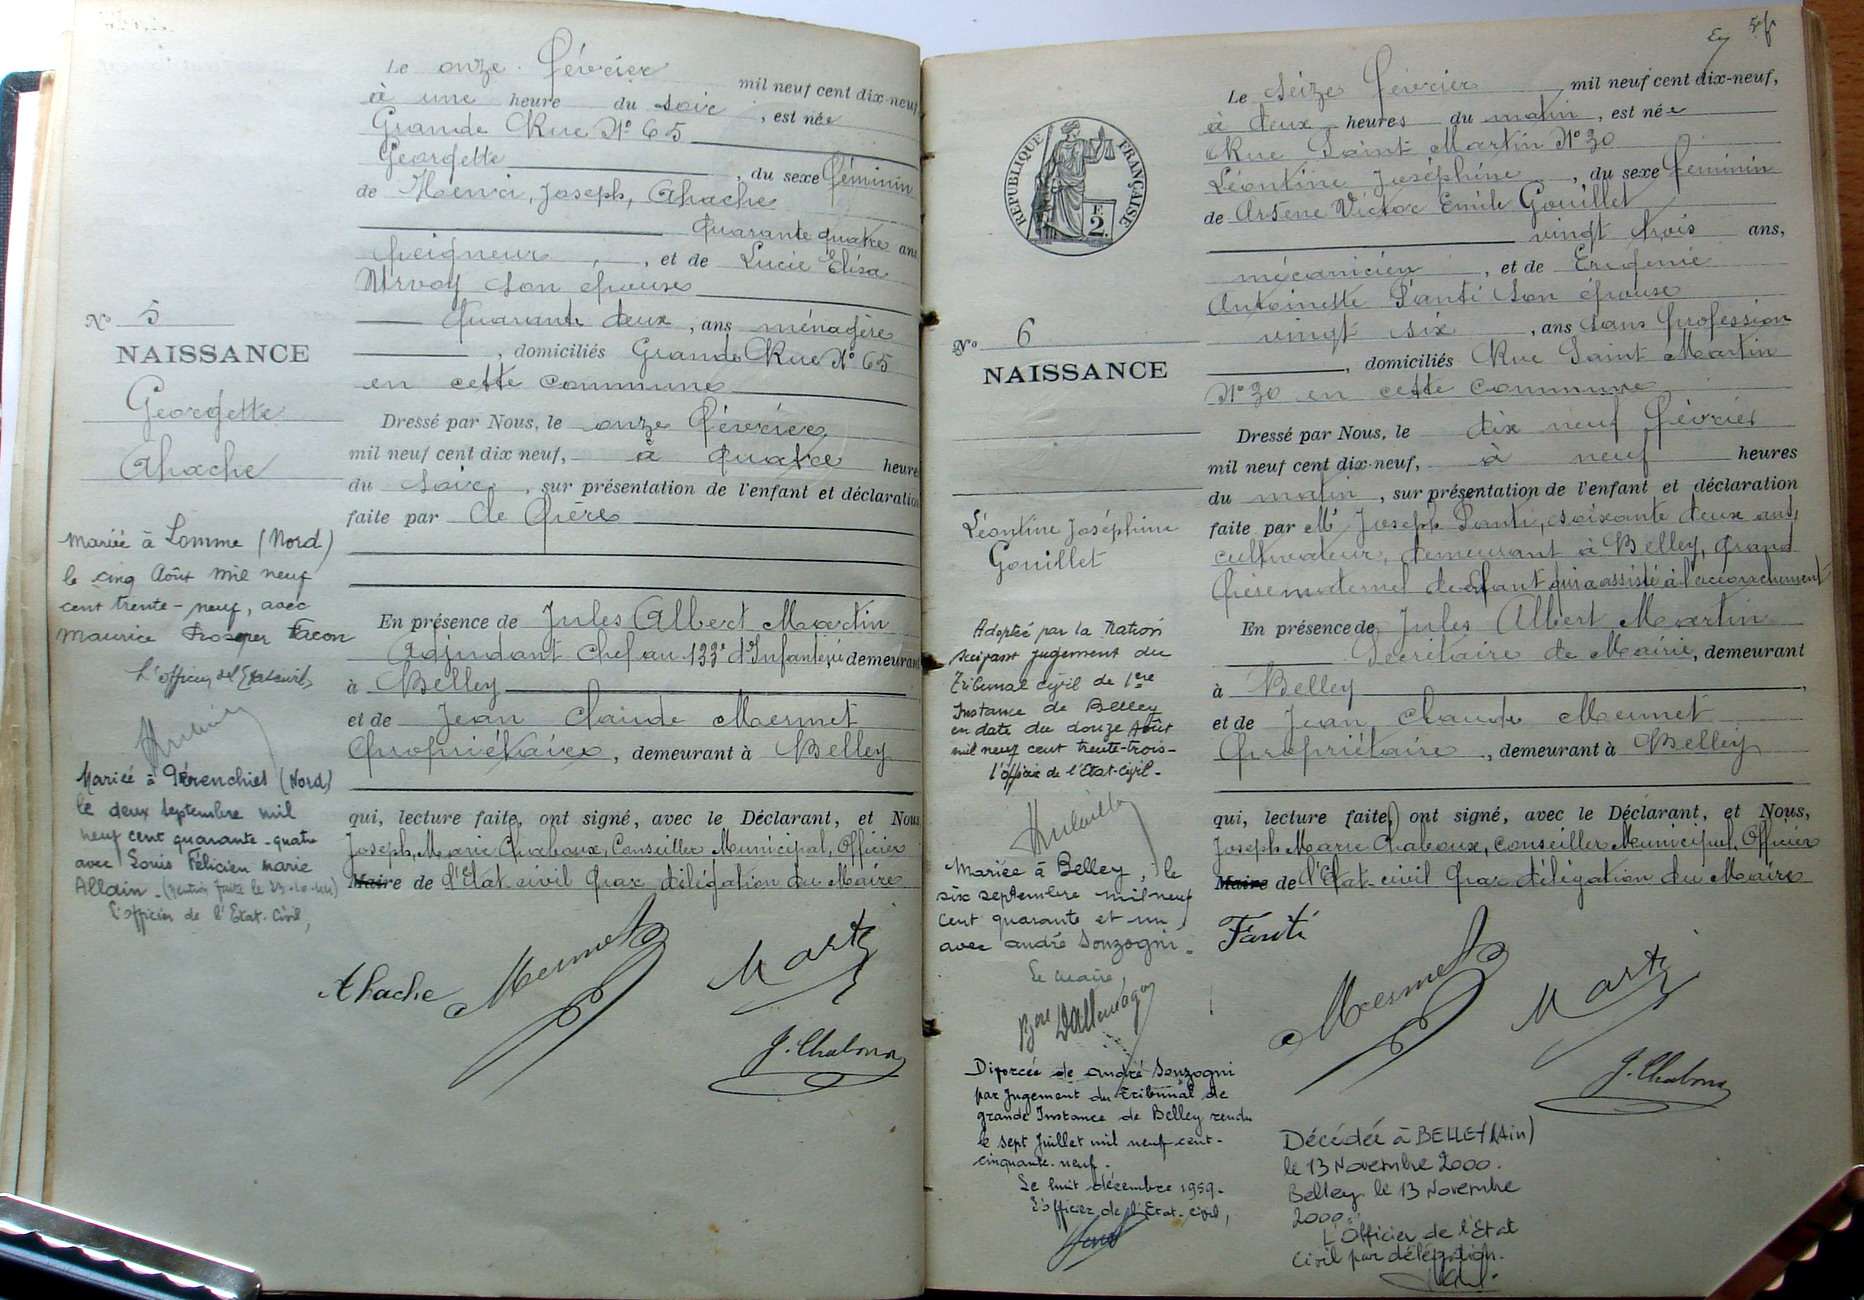 Le onze février mil neuf cent dix-neuf
à une heure du soir, est née
Grande Rue N° 65
Georgette, du sexe féminin
de Henri, Joseph, Ahache
quarante quatre ans
peigneur, et de Lucie Elisa
Urvoy son épouse
quarante deux, ans ménagère
, domiciliés Grande Rue N° 65
en cette commune
N° 5
NAISSANCE
Georgette
Ahache
Dressé par Nous, le onze février
mil neuf cent dix neuf, à quatre heures
du soir, sur présentation de l'enfant et déclaration
faite par le père
En présence de Jules Albert Martin
Adjudant Chef au 133e d'Infanterie demeurant
à Belley
et de Jean Claude Mermet
propriétaire, demeurant à Belley
qui, lecture faite, ont signé, avec le Déclarant, et Nous
Joseph, Marie Chaboux, Conseiller Municipal, Officier
Maire de l'Etat-civil par délégation du Maire
Mariée à Lomme (Nord)
le cinq Août mil neuf
cent trente-neuf, avec
Maurice Prosper Facon
L'officier de l'Etat civil,
Mariée à Pérenchies (Nord)
le deux septembre mil
neuf cent quarante-quatre
avec Louis Félicien Marie
Allain - (mention faite le 23-10-44)
L'officier de l'Etat-Civil,
Ahache Mermet Martin
J. Chaboux
5
Le seize février mil neuf cent dix-neuf,
à deux heures du matin, est née
Rue Saint Martin N° 30
Léontine Joséphine, du sexe féminin
de Arsène Victor Emile Gouillet
vingt trois ans,
mécanicien, et de Eugénie
Antoinette Fanti son épouse
vingt six, ans sans profession
, domiciliés Rue Saint Martin
N° 30 en cette commune
RÉPUBLIQUE FRANÇAISE
F.
2.
N° 6
NAISSANCE
Léontine Joséphine
Gouillet
Dressé par Nous, le dix neuf février
mil neuf cent dix-neuf, à neuf heures
du matin, sur présentation de l'enfant et déclaration
faite par Mr Joseph Fanti, soixante deux ans,
cultivateur, demeurant à Belley, grand
père maternel de l'enfant qui a assisté à l'accouchement
En présence de Jules Albert Martin
Secrétaire de Mairie, demeurant
à Belley
et de Jean Claude Mermet
propriétaire, demeurant à Belley
qui, lecture faite, ont signé, avec le Déclarant, et Nous,
Joseph Marie Chaboux, conseiller Municipal, Officier
Maire de l'Etat-civil par délégation du Maire
Adoptée par la Nation
suivant jugement du
Tribunal civil de 1ère
Instance de Belley
en date du douze Août
mil neuf cent trente-trois-
l'officier de l'Etat-Civil-
Mariée à Belley, le
six septembre mil neuf
cent quarante et un
avec André Sonzogni.
Le Maire,
Divorcée de André Sonzogni
par Jugement du Tribunal de
grande Instance de Belley rendu
le sept Juillet mil neuf cent-
cinquante-neuf.
Le huit décembre 1959.
L'officier de l'Etat-Civil,
Fanti
Mermet Martin
J. Chaboux
Décédée à BELLEY (Ain)
le 13 Novembre 2000.
Belley le 13 Novembre
2000.
L'Officier de l'Etat
Civil par délégation.